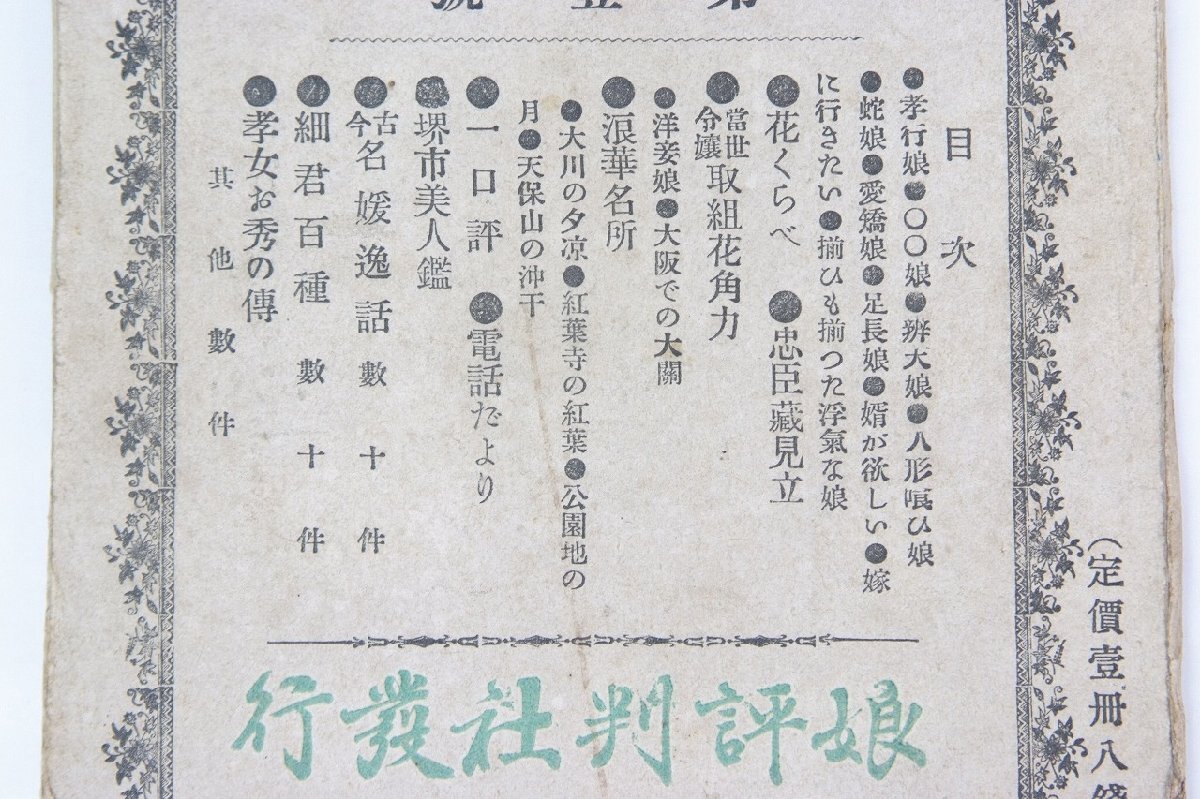 目次
●孝行娘●〇〇娘●辨天娘●人形喰ひ娘
●蛇娘●愛嬌娘●足長娘●婿が欲しい●嫁
に行きたい●揃ひも揃つた浮氣な娘
●花くらべ　●忠臣藏見立
●當世令孃取組花角力
●洋妾娘●大阪での大關
●浪華名所
●大川の夕凉●紅葉寺の紅葉●公園地の
月●天保山の沖干
●一口評　●電話だより
●堺市美人鑑
●古今名媛逸話數十件
●細君百種數十件
●孝女お秀の傳
其他數件
(定價壹冊八錢
娘評判社發行